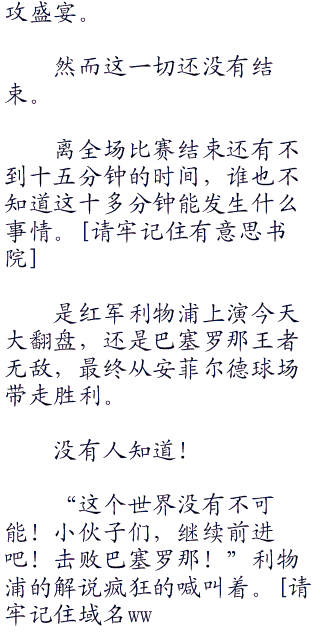 攻盛宴。
然而这一切还没有结
束。
离全场比赛结束还有不
到十五分钟的时间，谁也不
知道这十多分钟能发生什么
事情。[请牢记住有意思书
院]
是红军利物浦上演今天
大翻盘，还是巴塞罗那王者
无敌，最终从安菲尔德球场
带走胜利。
没有人知道！
“这个世界没有不可
能！小伙子们，继续前进
吧！击败巴塞罗那！”利物
浦的解说疯狂的喊叫着。[请
牢记住域名ww